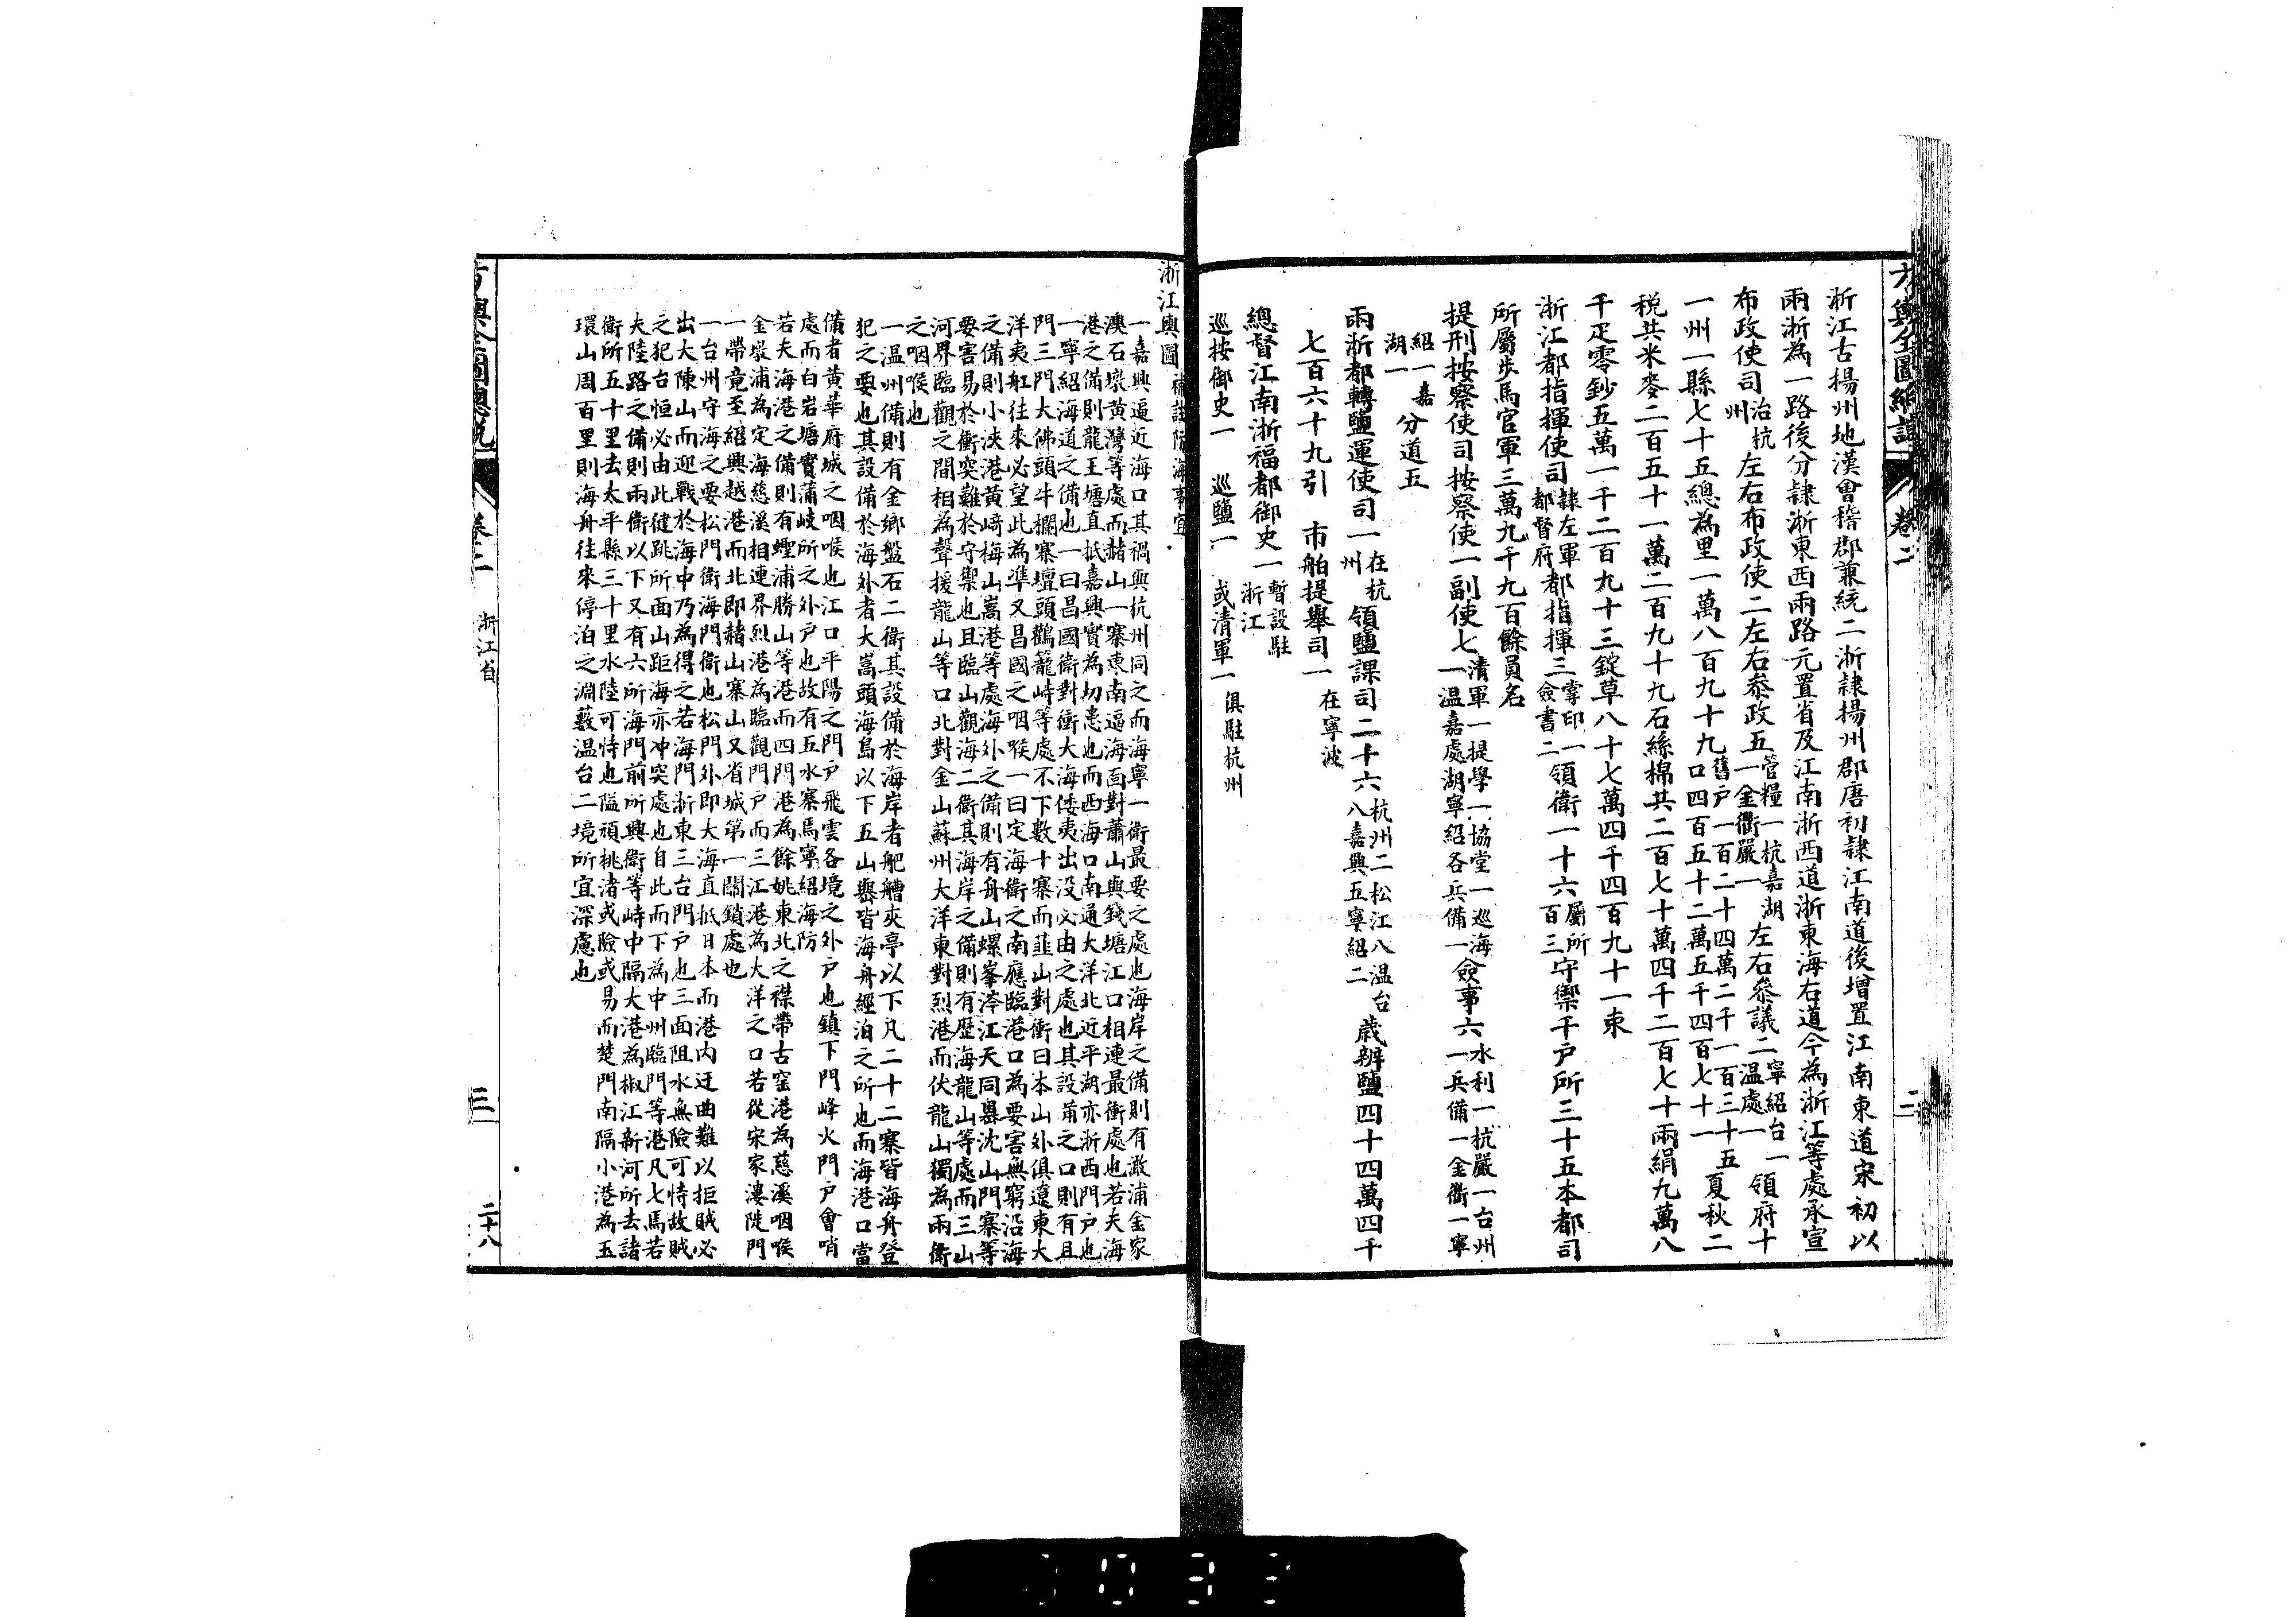 方輿全圖總說 卷二 二
浙江古揚州地漢會稽郡兼統二浙隸揚州郡唐初隸江南道後增置江南東道宋初以
兩浙為一路後分隸浙東西兩路元置省及江南浙西道浙東海右道今為浙江等處承宣
布政使司治杭州左右布政使二左右叅政五管糧一杭嘉湖一金衢嚴一左右叅議二寧紹台一溫處一領府十
一州一縣七十五總為里一萬八百九十九舊戶一百二十四萬二千一百三十五口四百五十二萬五千四百七十一夏秋二
税共米麥二百五十一萬二百九十九石絲棉共二百七十萬四千二百七十兩絹九萬八
千疋零鈔五萬一千二百九十三錠草八十七萬四千四百九十一束
浙江都指揮使司隸左軍都督府都指揮三掌印一僉書二領衛一十六屬所百三守禦千戶所三十五本都司
所屬步馬官軍三萬九千九百餘員名
提刑按察使司按察使一副使七清軍一提學一協堂一巡海一温嘉處湖寧紹各兵備一僉事六水利一杭嚴一台州一兵備一金衢一寧
紹一嘉湖一分道五
兩浙都轉鹽運使司一在杭州領鹽課司二十六杭州二松江八温台八嘉興五寧紹二歲辦鹽四十四萬四千
七百六十九引 市舶提舉司一在寧波
總督江南浙福都御史一暫設駐浙江
巡按御史一 巡鹽一 或清軍一俱駐杭州
浙江輿圖補註防海事宜
一嘉興逼近海口其禍與杭州同之而海寧一衛最要之處也海岸之備則有澉浦金家
澳石墩黃灣等處而赭山一寨東南逼海面對蕭山與錢塘江口相連最衝處也若夫海
港之備則龍王塘直抵嘉興實為切患也而西海口南通大洋北近平湖亦浙西門戶也
一寧紹海道之備也一曰昌國衛對衝大海倭夷出没必由之處也其設莆之口則有且
門三門大佛頭牛欄寨壇頭鸛籠崎等處不下數十寨而韮山對衝日本山外俱遼東大
洋夷舡往來必望此為準又昌國之咽喉一曰定海衛之南應臨港口為要害無窮沿海
之備則小浹港黃﨑梅山嵩港等處海外之備則有舟山螺峯涬江天同嶴沈山門寨等
要害易於衝突難於守禦也且臨山觀海二衛其海岸之備則有歷海龍山等處而三山
河界臨觀之間相為聲援龍山等口北對金山蘇州大洋東對烈港而伏龍山獨為兩衛
之咽喉也
一温州備則有金鄉盤石二衛其設備於海岸者舥艚夾亭以下凡二十二寨皆海舟登
犯之要也其設備於海外者大嵩頭海島以下五山嶴皆海舟經泊之所也而海港口當
備者黃華府城之咽喉也江口平陽之門戶飛雲各境之外戶也鎮下門峰火門戶會哨
處而白岩塘實蒲岐所之外戶也故有五水寨馬寧紹海防
若夫海港之備則有蟶浦勝山等港而四門港為餘姚東北之襟帶古窑港為慈溪咽喉
金墩浦為定海慈溪相連界烈港為臨觀門戶而三江港為大洋之口若從宋家漊陡門
一帶竟至紹興越港而北即赭山寨山又省城第一關鎖處也
一台州守海之要松門衛海門衛也松門外即大海直抵日本而港内迂曲難以拒賊必
出大陳山而迎戰於海中乃為得之若海門浙東三台門戶也三面阻水無險可恃故賊
之犯台恒必由此徤跳所面山距海亦冲突處也自此而下為中州臨門等港凡七馬若
夫陸路之備則兩衛以下又有六所海門前所興衛等峙中隔大港為椒江新河所去諸
衛所五十里去太平縣三十里水陸可恃也隘頑桃渚或險或易而楚門南隔小港為玉
環山周百里則海舟往來停泊之淵藪温台二境所宜深慮也
方輿全圖總說 卷二 浙江省 三 二十八